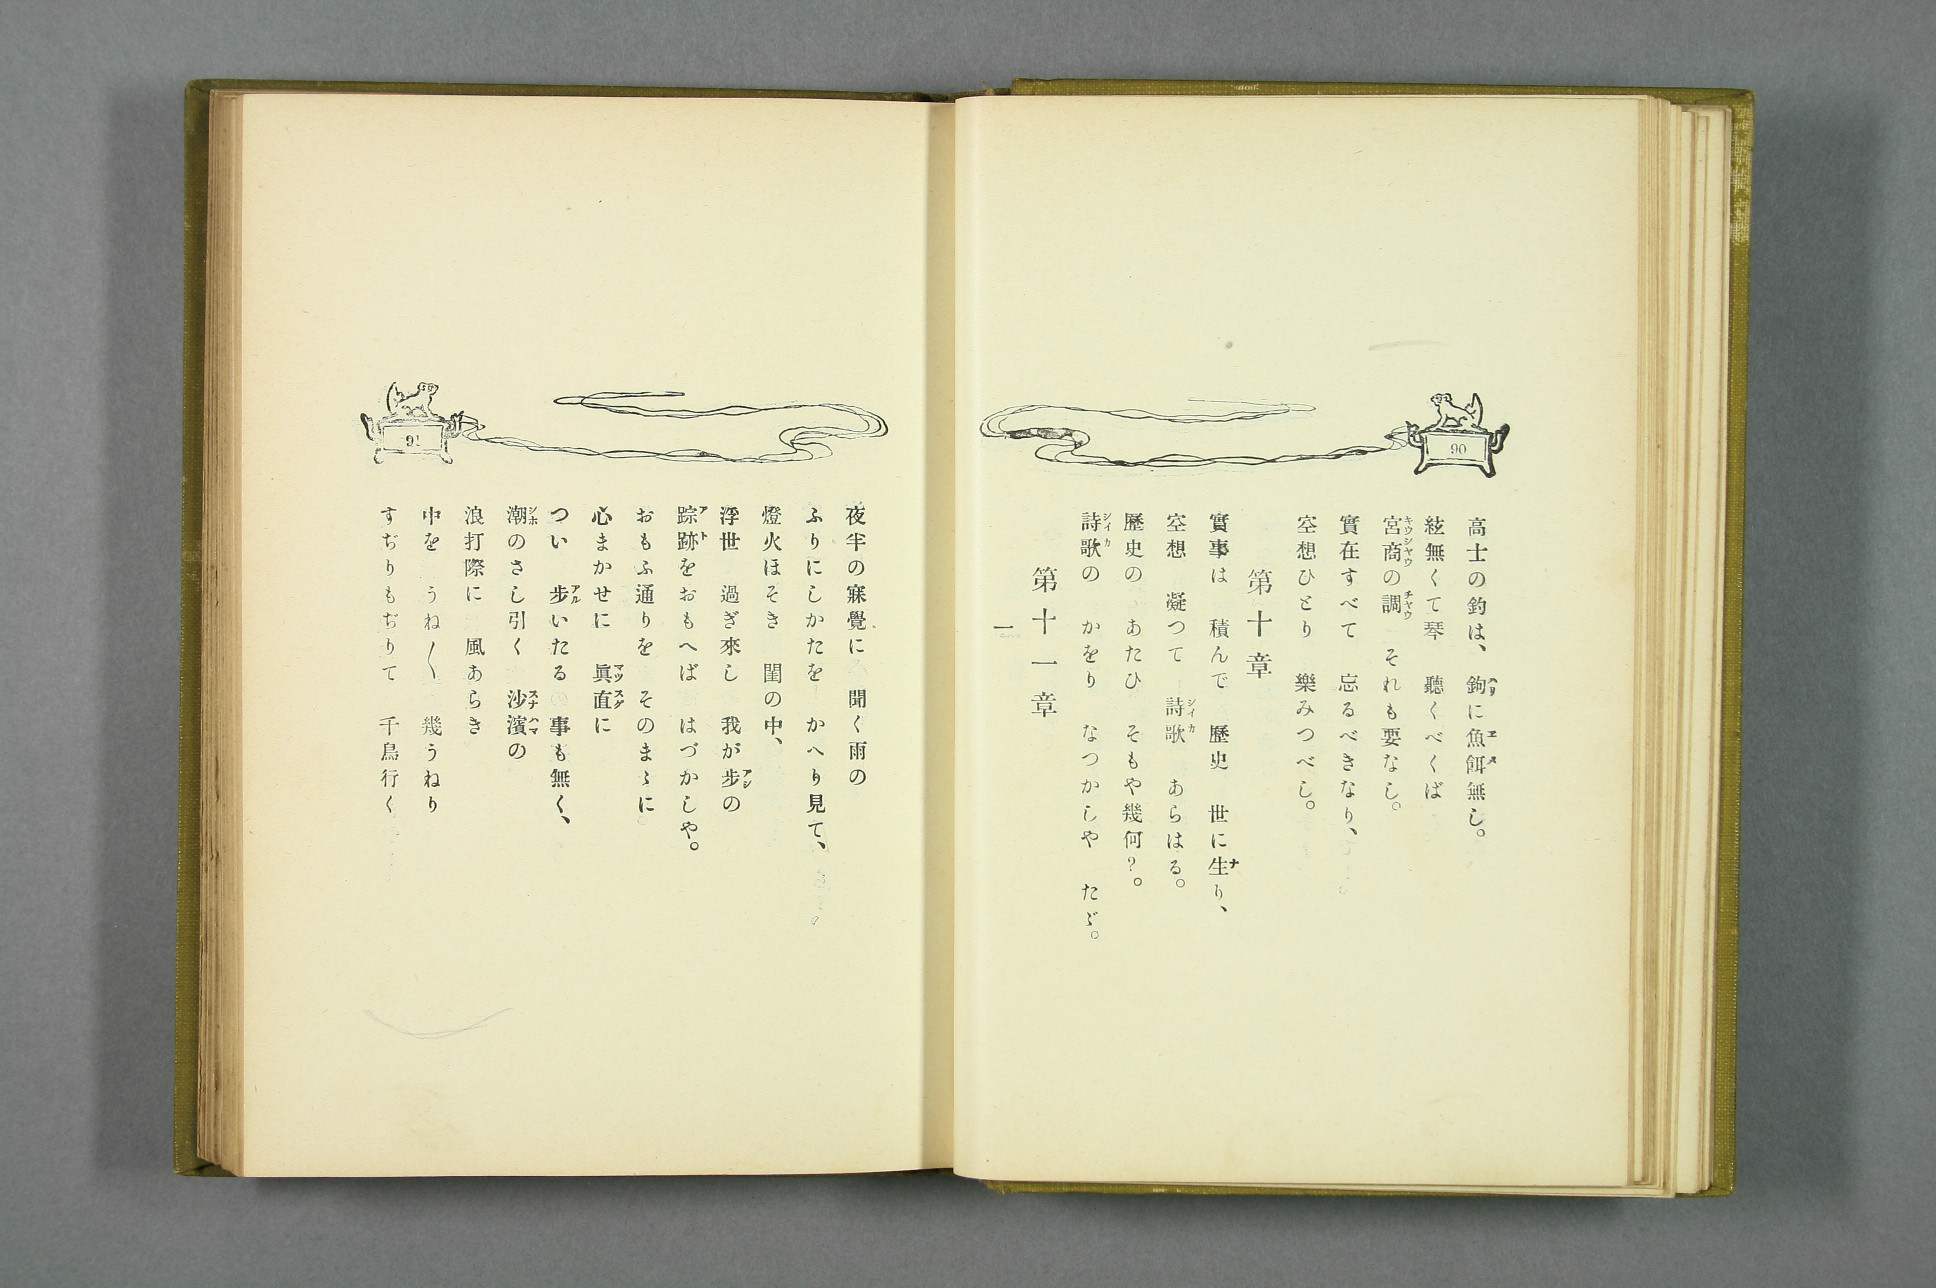 90
高士の釣は、 鉤に魚餌無し。
絃無くて琴 聽くべくば
宮商の調 それも要なし。
實在すべて 忘るべきなり、
空想ひとり 樂みつべし。
第十章
實事は 積んで 歷史 世に生り、
空想 凝つて 詩歌 あらはる。
歷史の あたひ そもや幾何?。
詩歌の かをり なつかしや たゞ。
第十一章
一
91
夜半の寐覺に 聞く雨の
ふりにしかたを かへり見て、
燈火ほそき 閨の中、
浮世 過ぎ來し 我が步の
踪跡をおもへば はづかしや。
おもふ通りを そのまゝに
心まかせに 眞直に
つい 步いたる 事も無く、
潮のさし引く 沙濱の
浪打際に 風あらき
中を うね〱 幾うねり
すぢりもぢりて 千鳥行く